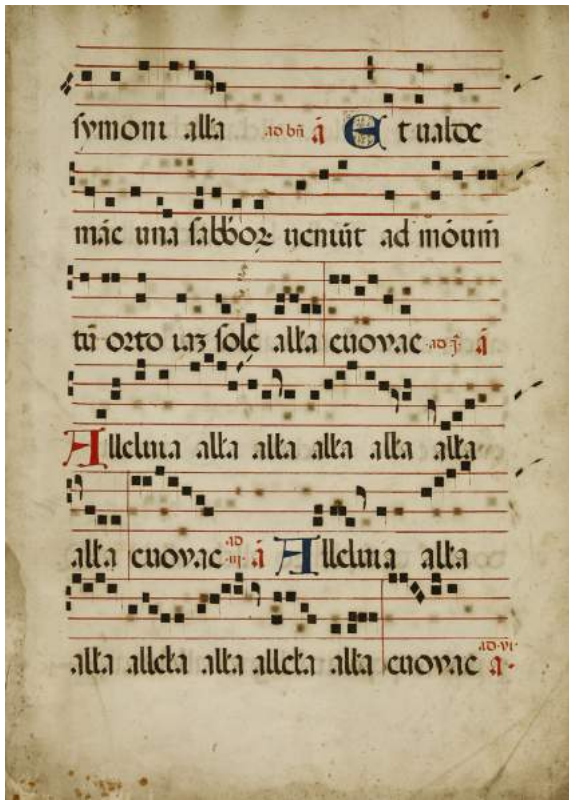 symoni alła ad bn̄ a Et ualde
māe una sabb̄oꝝ ueniūt ad mōum̄
tū orto iaꝫ sole alła euovae ad j a
Alleluia alła alła alła alła alła
alła euovae ad iij a Alleluia alła
alła alleła alła alleła alła euovae ad vi a